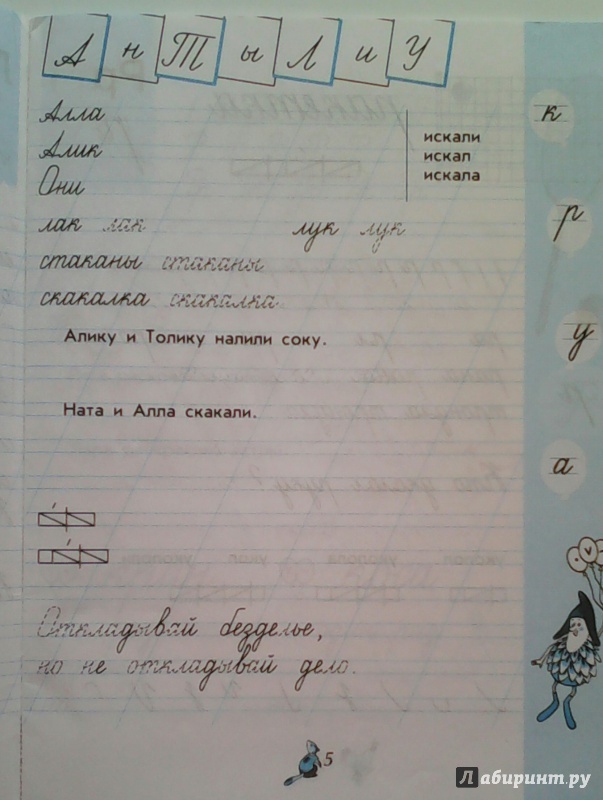 А н Т ы Л и У
Алла
Алик
Они
искали
искал
искала
лак лак лук лук
стаканы стаканы
скакалка скакалка
Алику и Толику налили соку.
Ната и Алла скакали.
Откладывай безделье,
но не откладывай дело.
к
р
у
а
5
Лабиринт.ру